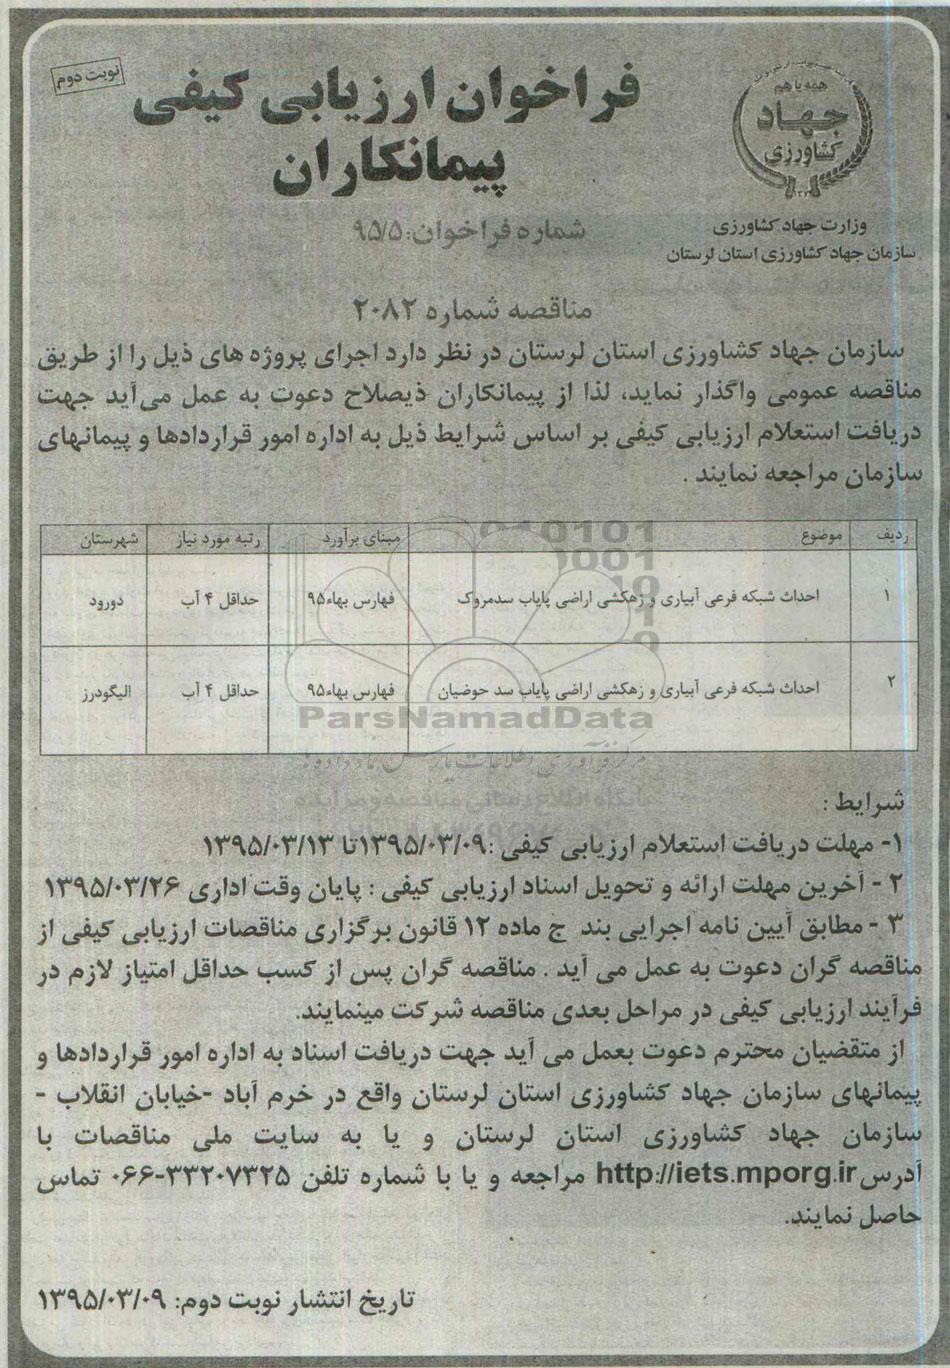 نوبت دوم
فراخوان ارزیابی کیفی
پیمانکاران
همه با هم
جهاد
کشاورزی
وزارت جهاد کشاورزی
سازمان جهاد کشاورزی استان لرستان
شماره فراخوان: ۹۵/۵
مناقصه شماره ۲۰۸۲
سازمان جهاد کشاورزی استان لرستان در نظر دارد اجرای پروژه های ذیل را از طریق
مناقصه عمومی واگذار نماید، لذا از پیمانکاران ذیصلاح دعوت به عمل می‌آید جهت
دریافت استعلام ارزیابی کیفی بر اساس شرایط ذیل به اداره امور قراردادها و پیمانهای
سازمان مراجعه نمایند .
ردیف موضوع مبنای برآورد رتبه مورد نیاز شهرستان
۱ احداث شبکه فرعی آبیاری و زهکشی اراضی پایاب سدمروک فهارس بهاء۹۵ حداقل ۴ آب دورود
۲ احداث شبکه فرعی آبیاری و زهکشی اراضی پایاب سد حوضیان فهارس بهاء۹۵ حداقل ۴ آب الیگودرز
ParsNamadData
شرایط :
۱- مهلت دریافت استعلام ارزیابی کیفی :۱۳۹۵/۰۳/۰۹تا ۱۳۹۵/۰۳/۱۳
۲ - آخرین مهلت ارائه و تحویل اسناد ارزیابی کیفی : پایان وقت اداری ۱۳۹۵/۰۳/۲۶
۳ - مطابق آیین نامه اجرایی بند ج ماده ۱۲ قانون برگزاری مناقصات ارزیابی کیفی از
مناقصه گران دعوت به عمل می آید . مناقصه گران پس از کسب حداقل امتیاز لازم در
فرآیند ارزیابی کیفی در مراحل بعدی مناقصه شرکت مینمایند.
از متقضیان محترم دعوت بعمل می آید جهت دریافت اسناد به اداره امور قراردادها و
پیمانهای سازمان جهاد کشاورزی استان لرستان واقع در خرم آباد -خیابان انقلاب -
سازمان جهاد کشاورزی استان لرستان و یا به سایت ملی مناقصات با
آدرس http://iets.mporg.ir مراجعه و یا با شماره تلفن ۳۳۲۰۷۳۲۵-۰۶۶ تماس
حاصل نمایند.
تاریخ انتشار نوبت دوم: ۱۳۹۵/۰۳/۰۹